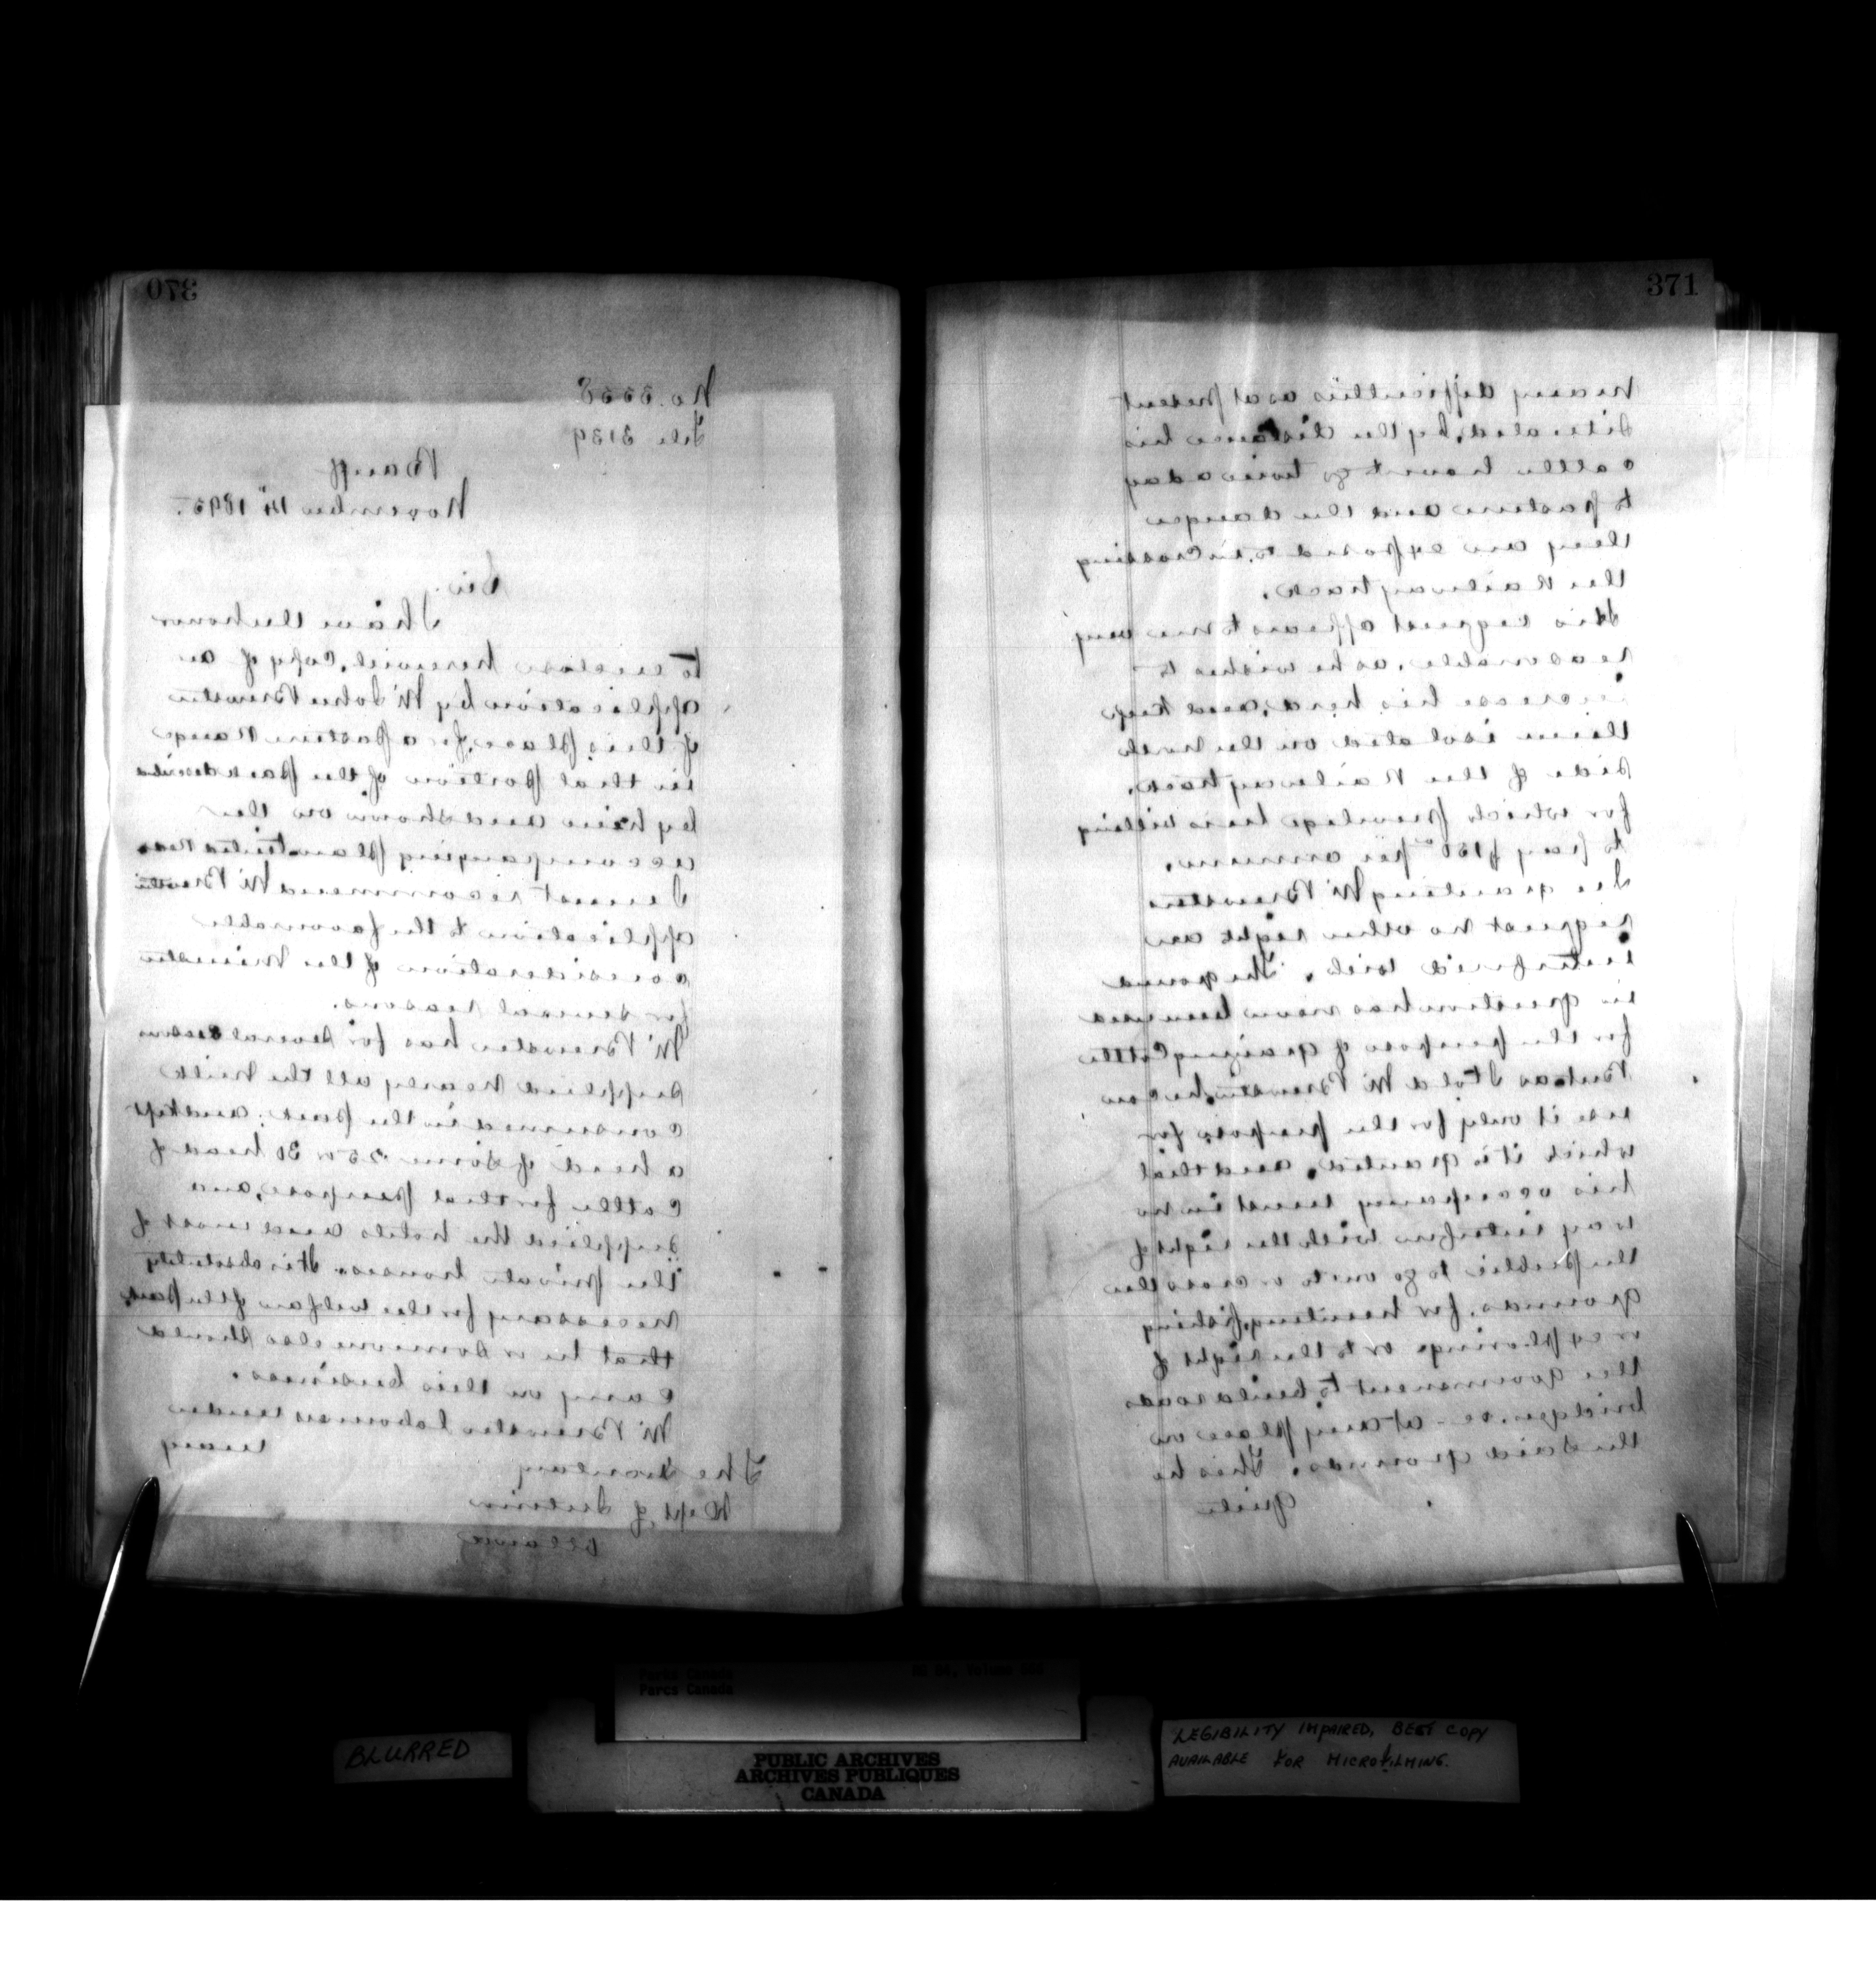 370
No. 5558
File 3139
Banff
November 14th 1895.
Sir.
I have the honor
to enclose herewith, copy of an
application by Mr John Brewster
of this place, for a pasture range
in that portion of the park described
by him and shown on the
accompanying plan
I must recommend Mr Brewster
application to the favourable
consideration of the Minister
for several reasons.
Mr Brewster has for several seasons
supplied nearly all the milk
consumed in the park; and kept
a herd of some 25 or 30 head of
cattle for that purpose, and
supplied the hotels and most of
the private houses. It is absolutely
necessary for the welfare of the park
that he or someone else should
carry on this business.
Mr Brewster labours under
many
The Secretary
Dept of Interior
Ottawa
371
many difficulties as at present
situated, by the distance his
cattle have to go twice a day
to pasture and the danger
they are exposed to in crossing
the Railway track.
His request appears to me very
reasonable, as he wishes to
increase his herd, and keep
them isolated on the north
side of the Railway track.
for which privilege he is willing
to pay per annum.
In granting Mr Brewster
request no other right are
interfered with. The ground
in question has never been used
for the purpose of grazing cattle
But as I told Mr Brewster he can
use it only for the purpose for
which it is granted, and that
his occupancy must in no
way interfere with the right of
the public to go on to or cross the
grounds, for hunting, fishing
or exploring, or to the right of
the government to build roads
bridges &c - at any place on
the said grounds. This he
quite
BLURRED
Parks Canada
Parcs Canada
PUBLIC ARCHIVES
ARCHIVES PUBLIQUES
CANADA
LEGIBILITY IMPAIRED, BEST COPY
AVAILABLE FOR MICROFILMING.